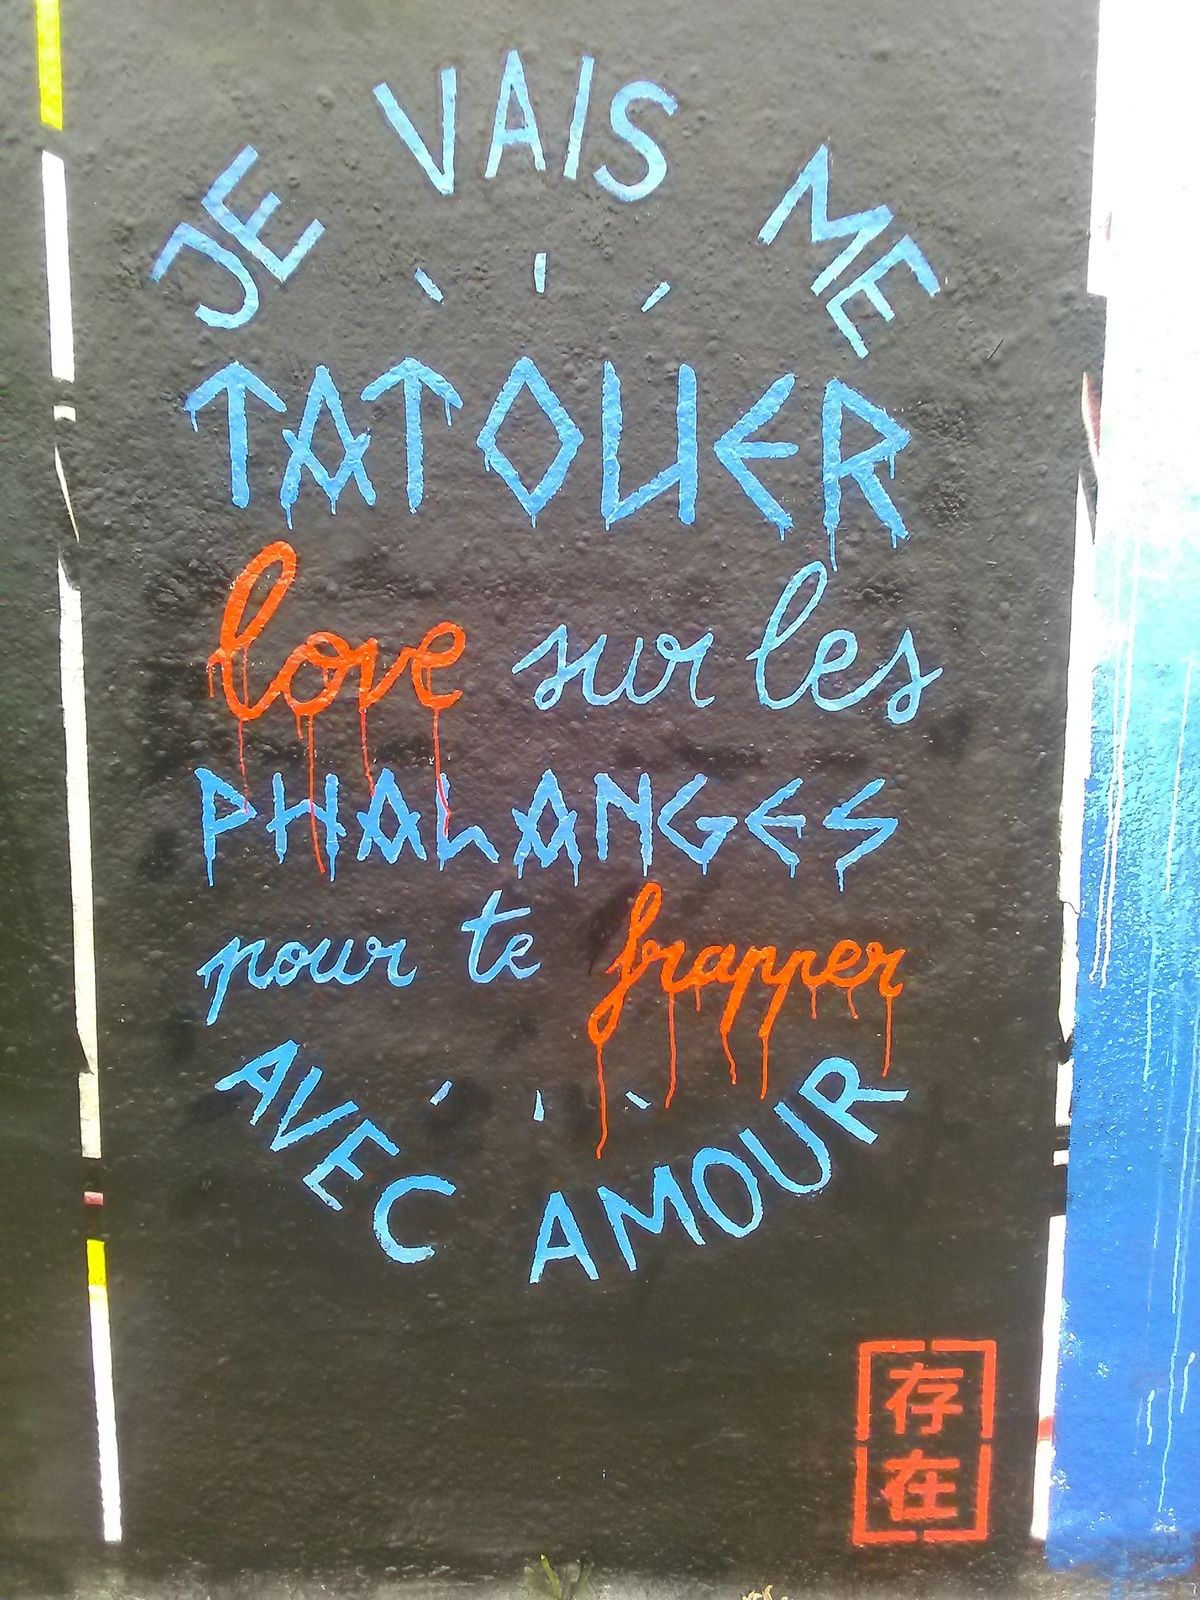 JE VAIS ME
TATOUER
love sur les
PHALANGES
pour te frapper
AVEC AMOUR
存
在